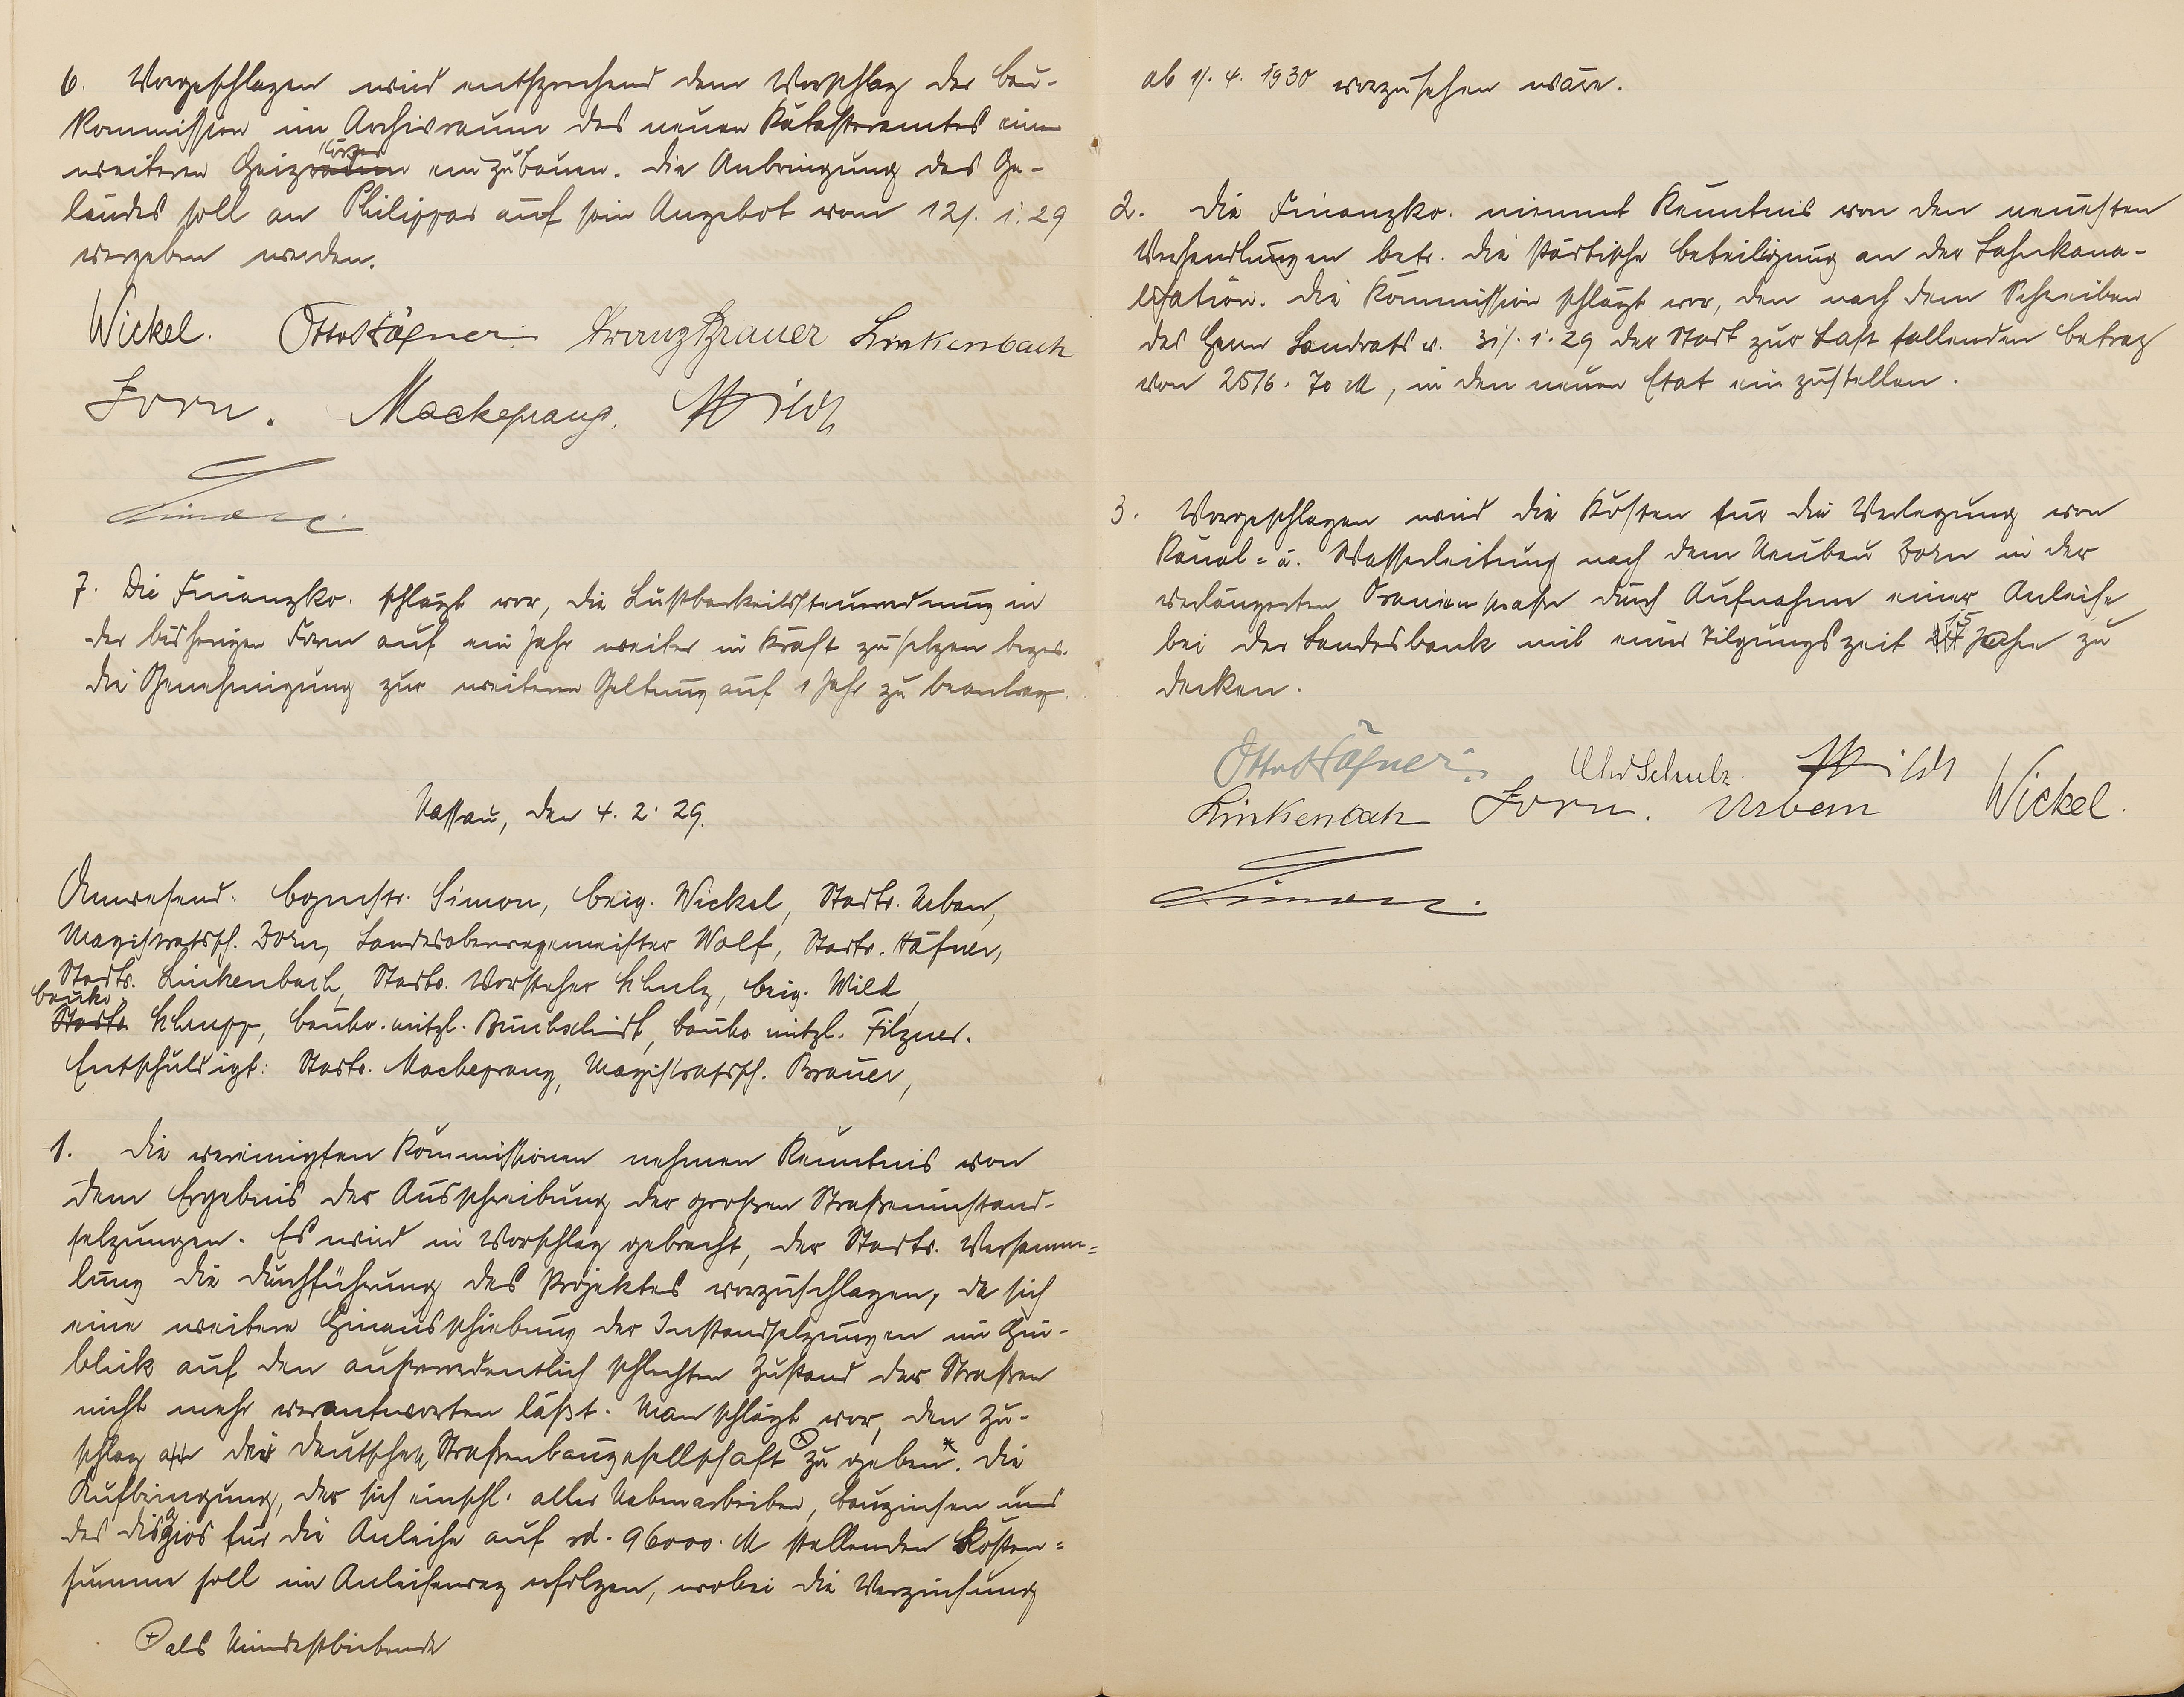 6. Vorgeschlagen wird entsprechend dem Vorschlag der Bau-
kommission im Archivraum des neuen Katasteramtes einen
weiteren Heizkörper einzubauen. Die Anbringung des Ge-
länders soll an Philippar auf sein Angebot vom 12/. 1. 29
vergeben werden.
Wickel. Otto Häfner Franz Brauer Linkenbach
Zorn. Mackeprang. Wild
Simon.
7. Die Finanzko. schlägt vor, die Lustbarkeitssteuerordnung in
der bisherigen Form auf ein Jahr weiter in Kraft zu setzen bezw.
die Genehmigung zur weiteren Geltung auf 1 Jahr zu beantrag.
Nassau, den 4. 2. 29.
Anwesend: Bgmstr. Simon, Beig. Wickel, Stadtv. Urban,
Magistratssch. Zorn, Landesoberwegemeister Wolf, Stadtv. Häfner,
Stadtv. Linkenbach, Stadtv. Vorsteher Schulz, Beig. Wild,
Bauko.
Stadtv. Schrupp, Bauko. mitgl. Buntschirk, Bauko mitgl. Filzner.
Entschuldigt: Stadtv. Mackeprang, Magistratssch. Brauer,
1. Die vereinigten Kommissionen nehmen Kenntnis von
dem Ergebnis der Ausschreibung der großen Straßeninstand-
setzungen. Es wird in Vorschlag gebracht, der Stadtv. Versamm=
lung die Durchführung des Projektes vorzuschlagen, da sich
eine weitere Hinausschiebung der Instandsetzungen im Hin-
blick auf den außerordentlich schlechten Zustand der Straßen
nicht mehr verantworten läßt. Man schlägt vor, den Zu-
schlag an der Deutschen Straßenbaugesellschaft ⊕ zu geben*. Die
Aufbringung, der sich einschl. aller Nebenarbeiten, Bauzinsen und
des Disagios für die Anleihe auf rd. 96000. M stellenden Kosten=
summe soll im Anleiheweg erfolgen, wobei die Verzinsung
⊕ als Mindestbietende
ab 1/. 4. 1930 vorzusehen wäre.
2. Die Finanzko. nimmt Kenntnis von den neuesten
Verhandlungen betr. die städtische Beteiligung an der Lahnkana-
lisation. Die Kommission schlägt vor, den nach dem Schreiben
des Herrn Landrats v. 31/. 1. 29 der Stadt zur Last fallenden Betrag
von 2576. 70 M, in den neuen Etat einzustellen.
3. Vorgeschlagen wird die Kosten für die Verlegung von
Kanal= u. Wasserleitung nach dem Neubau Zorn in der
verlängerten Oranienstraße durch Aufnahme einer Anleihe
bei der Landesbank mit einer Tilgungszeit 15 Jahre zu
decken.
Otto Häfner. Schulz. Wild
Linkenbach Zorn. Urban Wickel.
Simon.